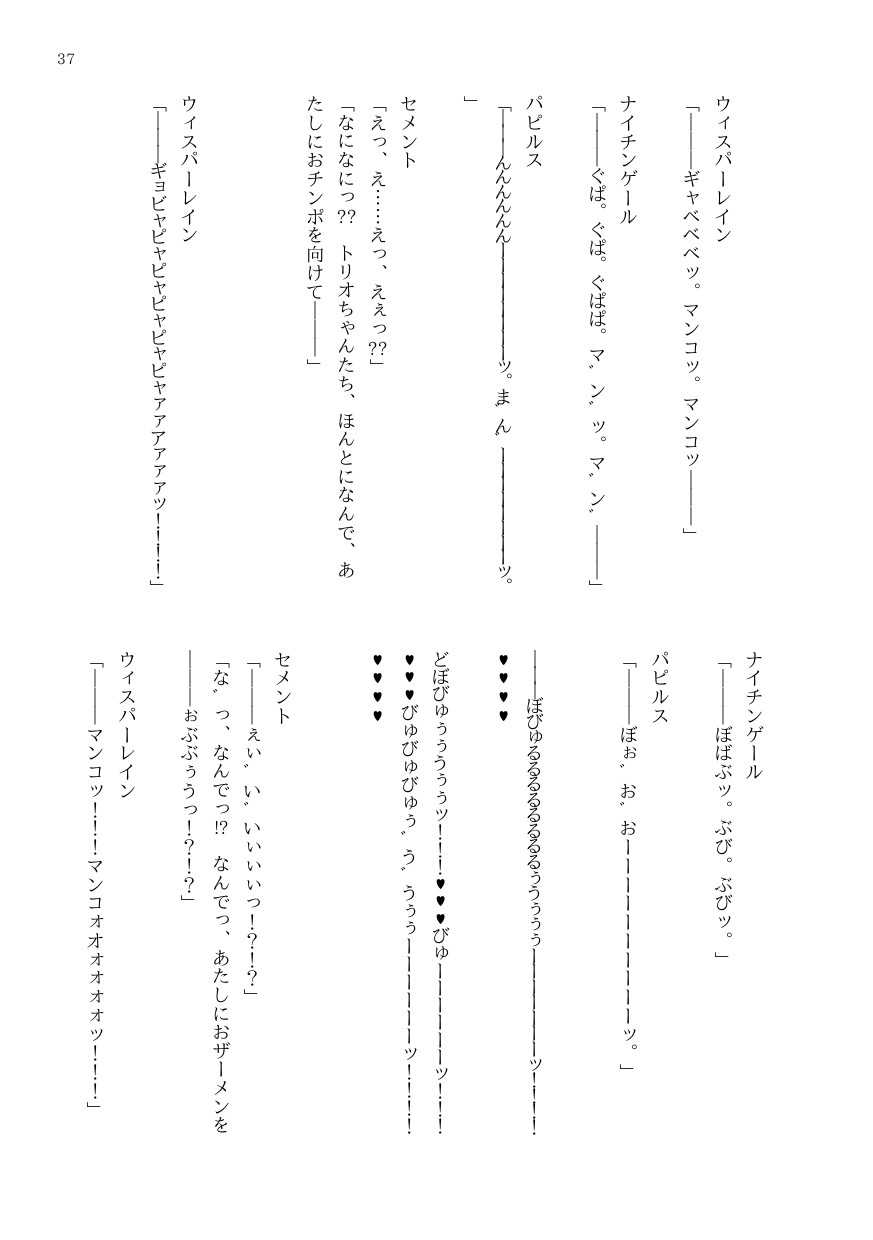 37
ウィスパーレイン
「―――ギャベベベッ。マンコッ。マンコッ―――」
ナイチンゲール
「―――ぐぱ。ぐぱ。ぐぱぱ。マ゛ン゛ッ。マ゛ン゛―――」
パピルス
「―――んんんんんん――――――――ッ。ま゛ん゛――――――――ッ。
」
セメント
「えっ、え……えっ、えぇっ??」
「なになにっ??　トリオちゃんたち、ほんとになんで、あ
たしにおチンポを向けて―――」
ウィスパーレイン
「―――ギョビャピャピャピャピャピャァァアァァァッ！！！！」
ナイチンゲール
「―――ぼばぶッ。ぶび。ぶびッ。」
パピルス
「―――ぼぉ゛お゛おーーーーーーーーーーッ。」
―――ぼびゅるるるるるるるぅうぅぅぅーーーーーーーッ！！！！
♥♥♥♥
どぼびゅぅぅうぅぅッ！！！♥♥♥びゅーーーーーーッ！！！
♥♥♥びゅびゅびゅぅ゛う゛うぅぅーーーーーーッ！！！！
♥♥♥♥
セメント
「―――ぇぃ゛い゛いぃぃぃっ！？！？」
「な゛っ、なんでっ!?　なんでっ、あたしにおザーメンを
―――ぉぶぶぅうっ！？！？」
ウィスパーレイン
「―――マンコッ！！！マンコォオォォォォッ！！！」